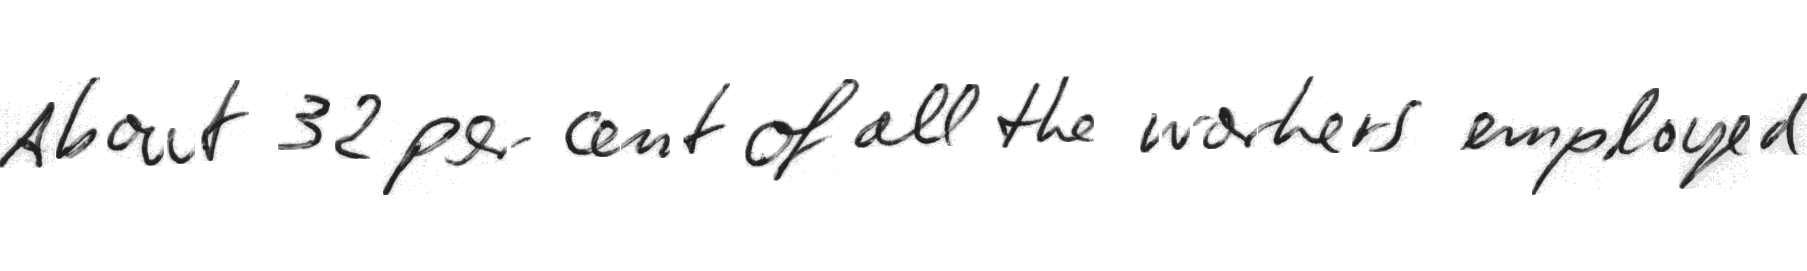 About 32 per cent of all the workers employed